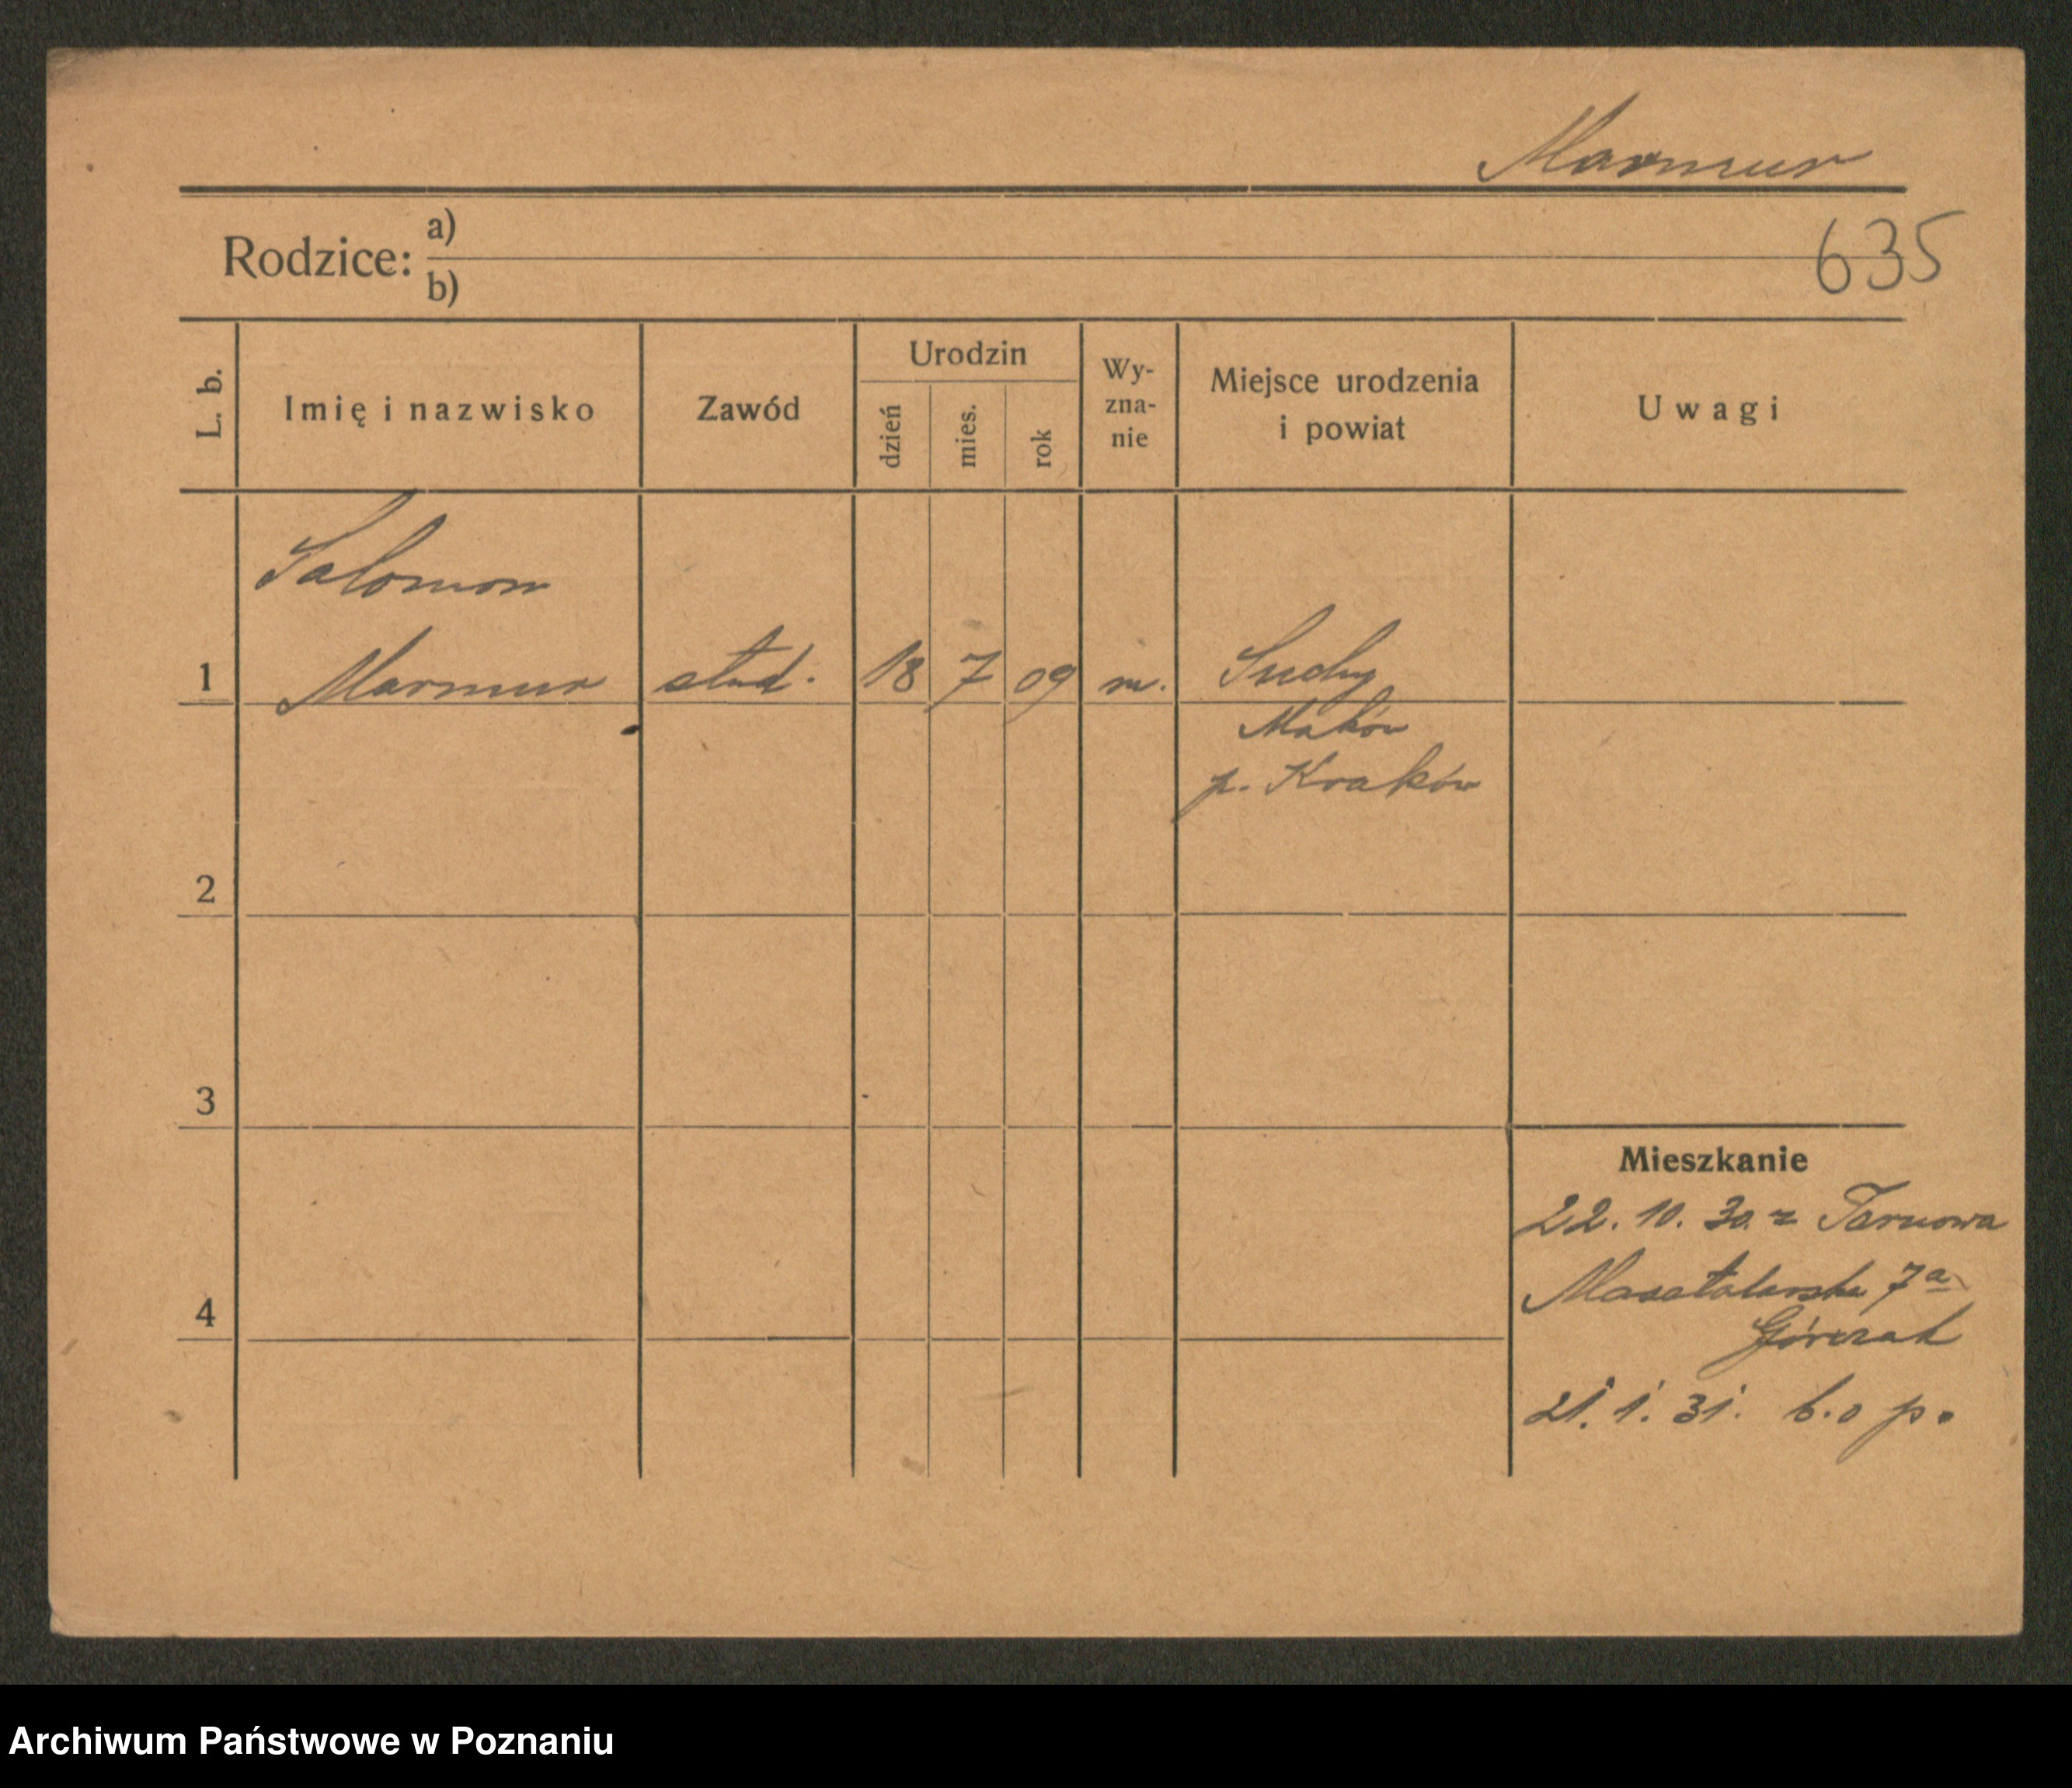 Marmur
635
Rodzice: a)
b)
L. b.
Imię i nazwisko
Zawód
Urodzin
dzień
mies.
rok
Wy-
zna-
nie
Miejsce urodzenia
i powiat
Uwagi
Salomon
1 Marmur stud. 18 7 09 m. Suchy
Maków
p. Kraków
2
3
4
Mieszkanie
22. 10. 30. z Tarnowa
Masztalarska 7a
Górczak
21. 1. 31. b. o p.
Archiwum Państwowe w Poznaniu